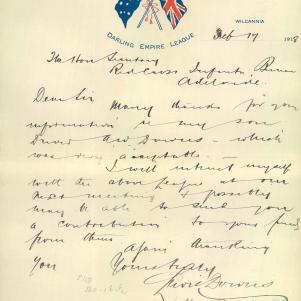 WILCANNIA
DARLING EMPIRE LEAGUE
Feb 17 1918
The Hon Secretary
Red Cross Inform. Bureau
Adelaide
Dear Sir Many thanks for your
information re my son
Driver AW Downs - which
was very acceptable -
I will interest myself
with the above League at our
next meeting & possibly
may be able to send you
a contribution to your fund
from them
Again thanking
you Yours truly
Downs